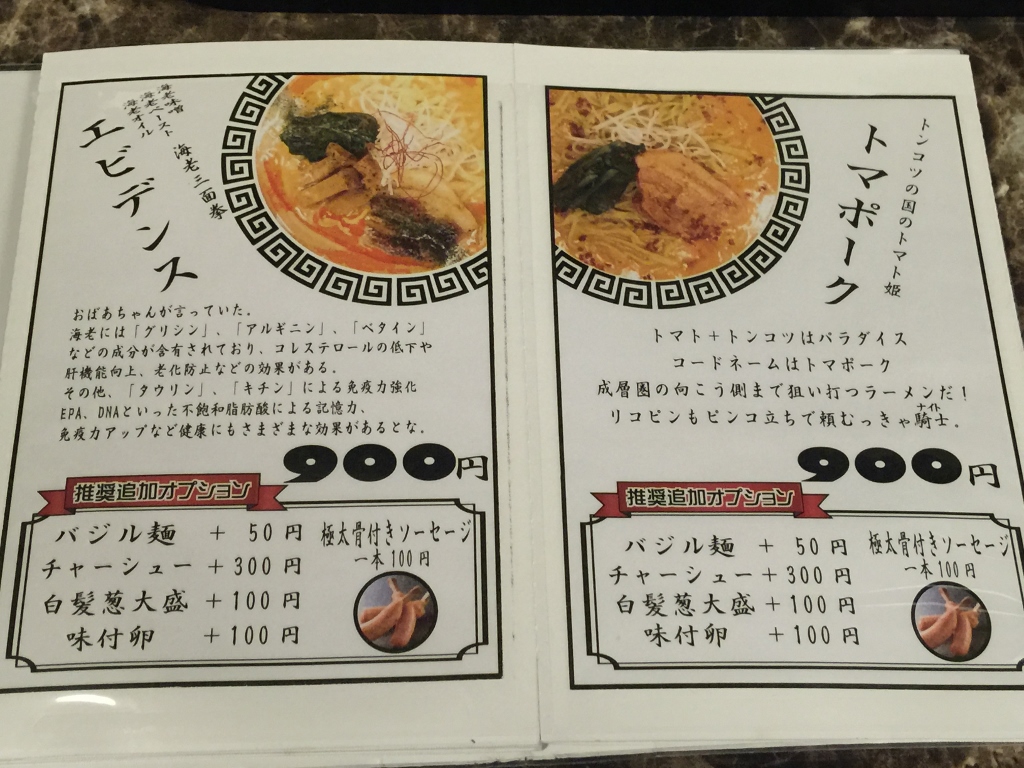 海老味噌
海老ペースト
海老オイル
海老三面拳
エビデンス
おばあちゃんが言っていた。
海老には「グリシン」、「アルギニン」、「ベタイン」
などの成分が含有されており、コレステロールの低下や
肝機能向上、老化防止などの効果がある。
その他、「タウリン」、「キチン」による免疫力強化
EPA、DNAといった不飽和脂肪酸による記憶力、
免疫力アップなど健康にもさまざまな効果があるとな。
900円
推奨追加オプション
バジル麺 +50円
チャーシュー+300円
白髪葱大盛+100円
味付卵 +100円
極太骨付きソーセージ
一本100円
トンコツの国のトマト姫
トマポーク
トマト+トンコツはパラダイス
コードネームはトマポーク
成層圏の向こう側まで狙い打つラーメンだ!
リコピンもピンコ立ちで頼むっきゃ騎士。
ナイト
900円
推奨追加オプション
バジル麺 +50円
チャーシュー+300円
白髪葱大盛+100円
味付卵 +100円
極太骨付きソーセージ
一本100円